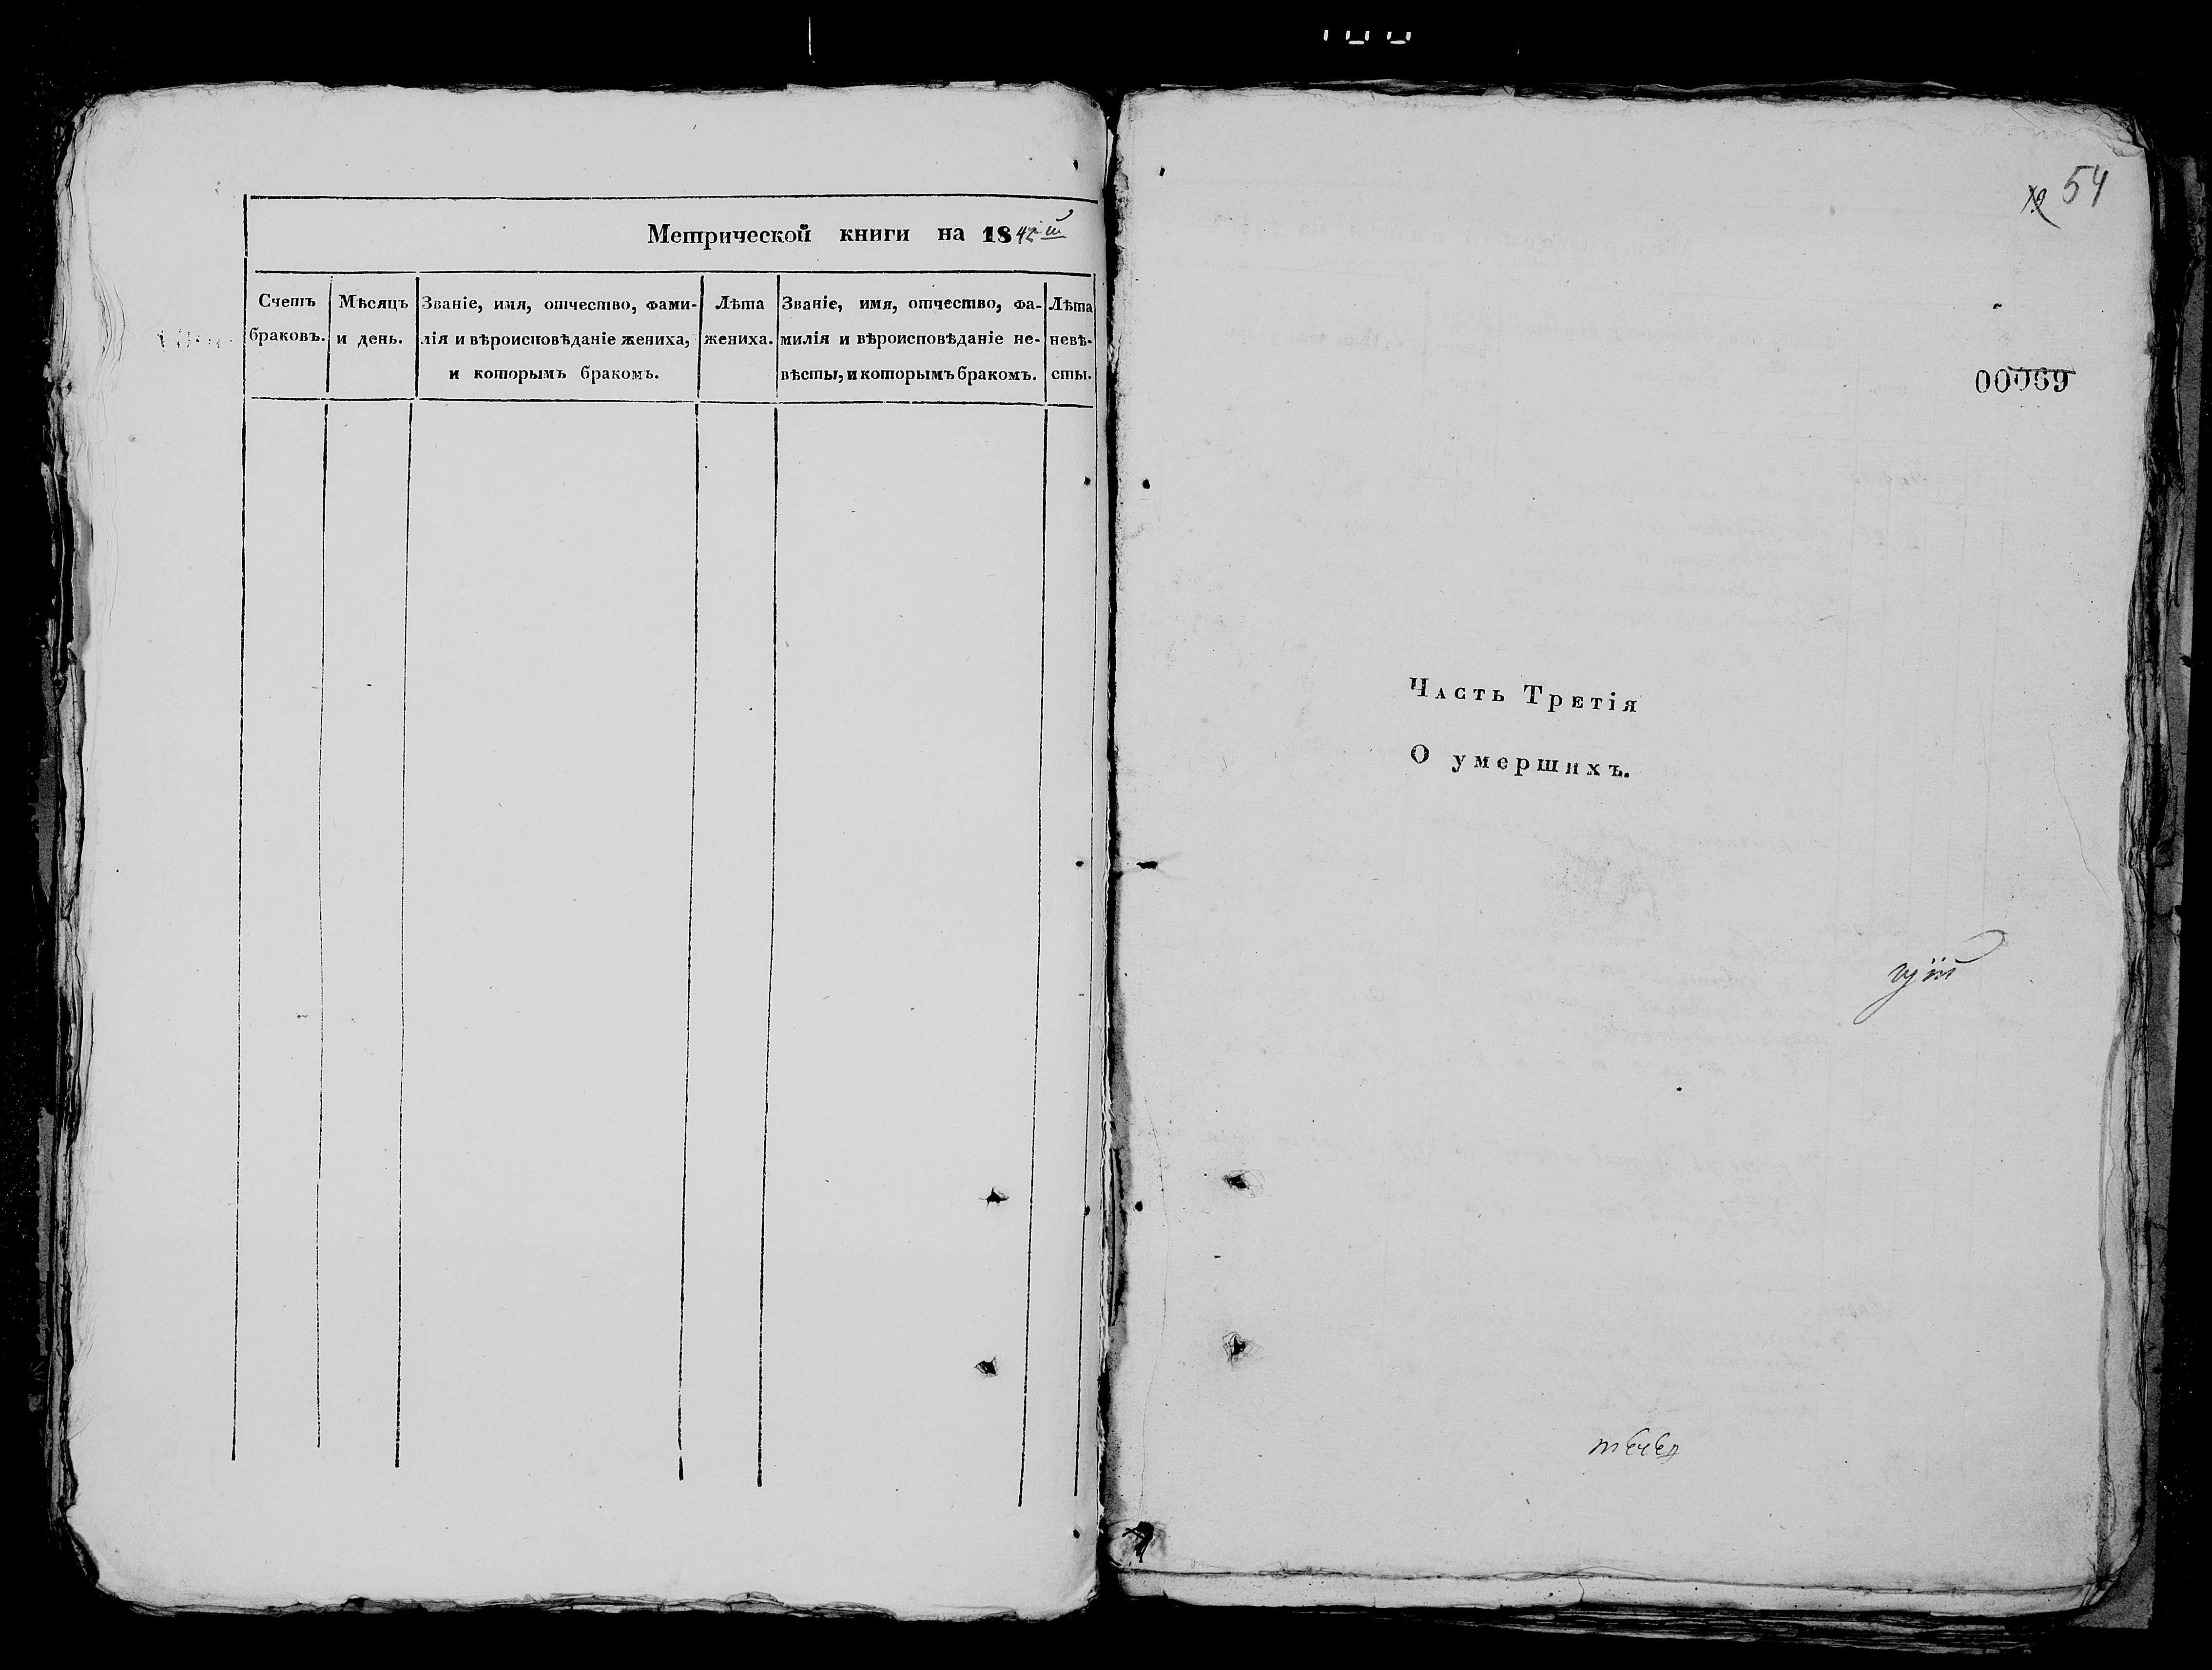 Метрической книги на 1842й
Счетъ браковъ.
Мѣсяцъ и день.
Званіе, имя, отчество, фами-
лія и вѣроисповѣданіе жениха,
и которымъ бракомъ.
Лѣта жениха.
Званіе, имя, отчество, фа-
милія и вѣроисповѣданіе не-
вѣсты, и которымъ бракомъ.
Лѣта невѣ-
сты.
54
00069
Часть Третія
О умершихъ.